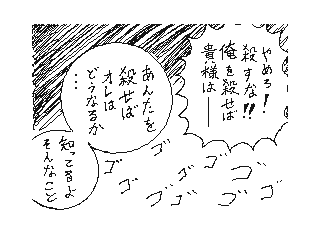 やめろ!
殺すな!!
俺を殺せば
貴様は──
あんたを
殺せば
オレは
どうなるか
…
知ってるよ
そんなこと
ゴ
ゴ
ゴ
ゴ
ゴ
ゴ
ゴ
ゴ
ゴ